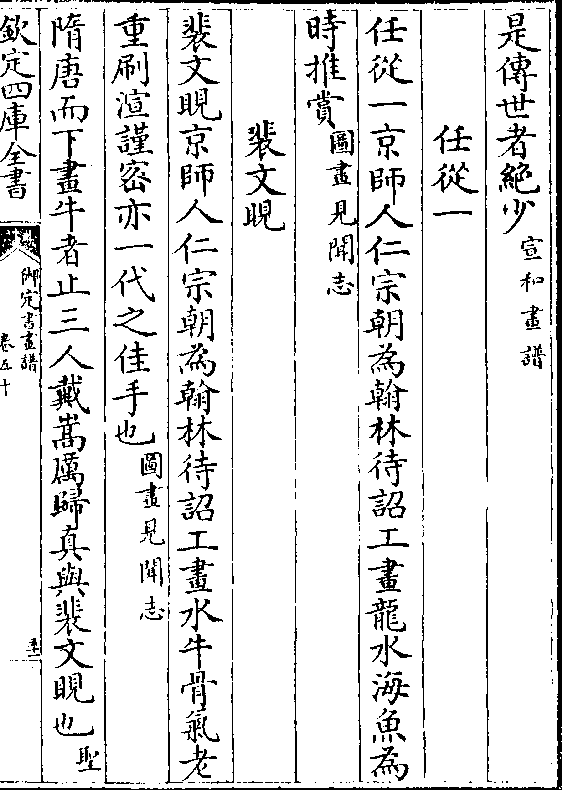 是傳世者絶少宣和畫譜
任從一
任從一京師人仁宗朝為翰林待詔工畫龍水海魚為
時推賞圖畫見聞志
裴文晛
裴文晛京師人仁宗朝為翰林待詔工畫水牛骨氣老
重刷渲謹密亦一代之佳手也圖畫見聞志
隋唐而下畫牛者止三人戴嵩厲歸真與裴文晛也聖
欽定四庫全書
御定書畫譜
卷五十